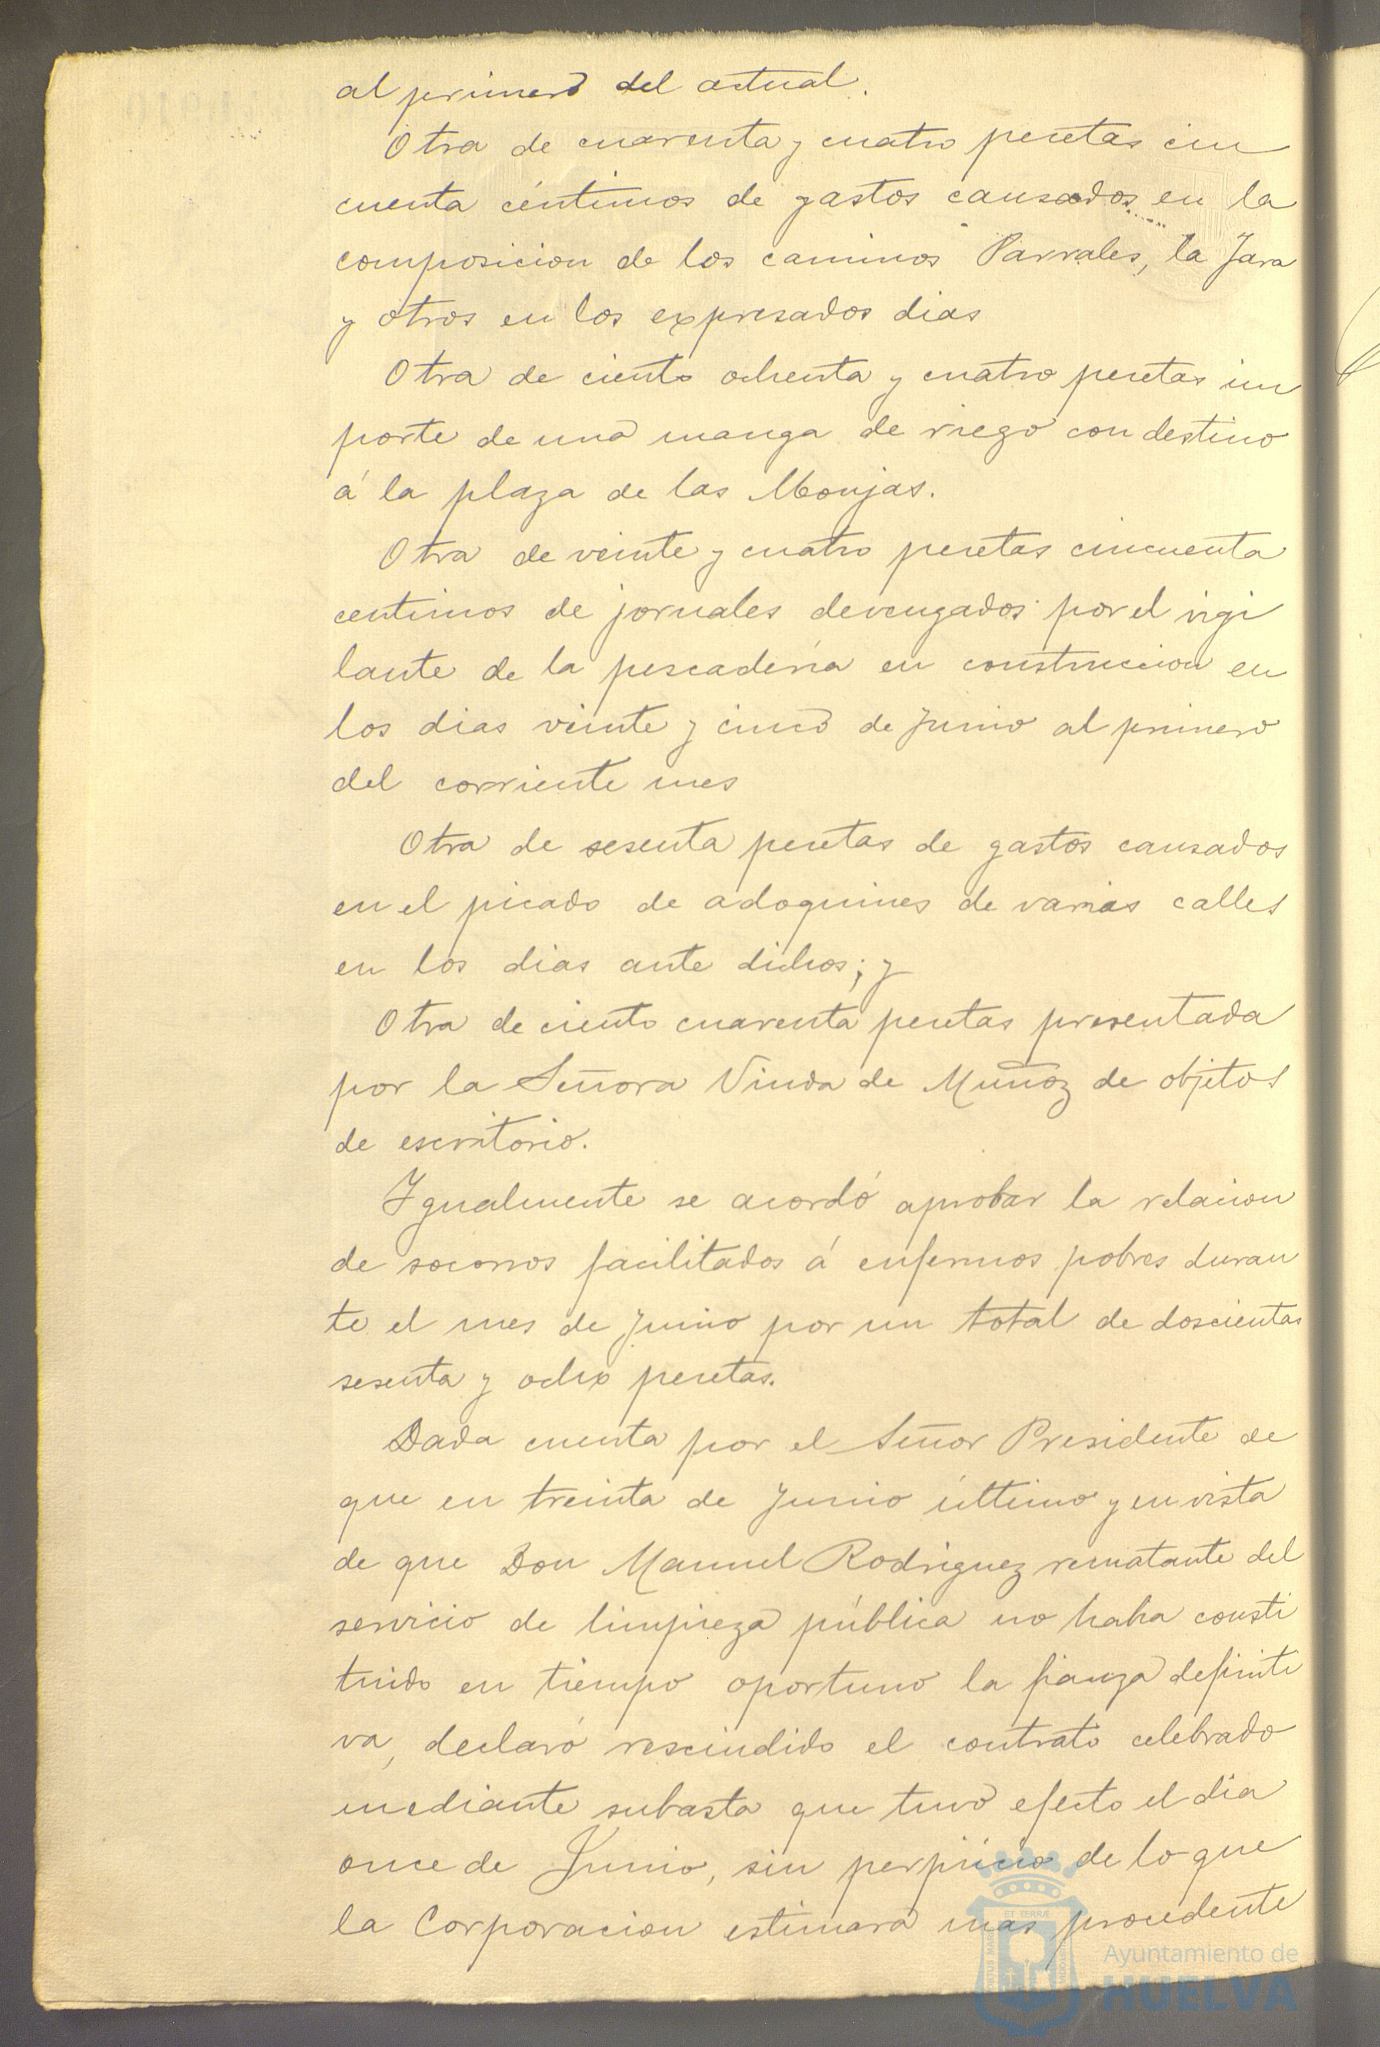 al primero del actual.
Otra de cuarenta y cuatro pesetas cin
cuenta céntimos de gastos causados en la
composicion de los caminos Parrales, la Jara
y otros en los expresados dias
Otra de ciento ochenta y cuatro pesetas im
porte de una manga de riego con destino
á la plaza de las Monjas.
Otra de veinte y cuatro pesetas cincuenta
centimos de jornales devengados por el vigi
lante de la pescadería en construccion en
los dias veinte y cinco de Junio al primero
del corriente mes
Otra de sesenta pesetas de gastos causados
en el picado de adoquines de varias calles
en los dias ante dichos; y
Otra de ciento cuarenta pesetas presentada
por la Señora Viuda de Muñoz de objetos
de escritorio.
Igualmente se acordó aprobar la relacion
de socorros facilitados á enfermos pobres duran
te el mes de Junio por un total de doscientas
sesenta y ocho pesetas.
Dada cuenta por el Señor Presidente de
que en treinta de Junio último y en vista
de que Don Manuel Rodriguez rematante del
servicio de limpieza pública no habia consti
tuido en tiempo oportuno la fianza definiti
va, declaró rescindido el contrato celebrado
mediante subasta que tuvo efecto el dia
once de Junio, sin perjuicio de lo que
la Corporacion estimara mas procedente
Ayuntamiento de
HUELVA